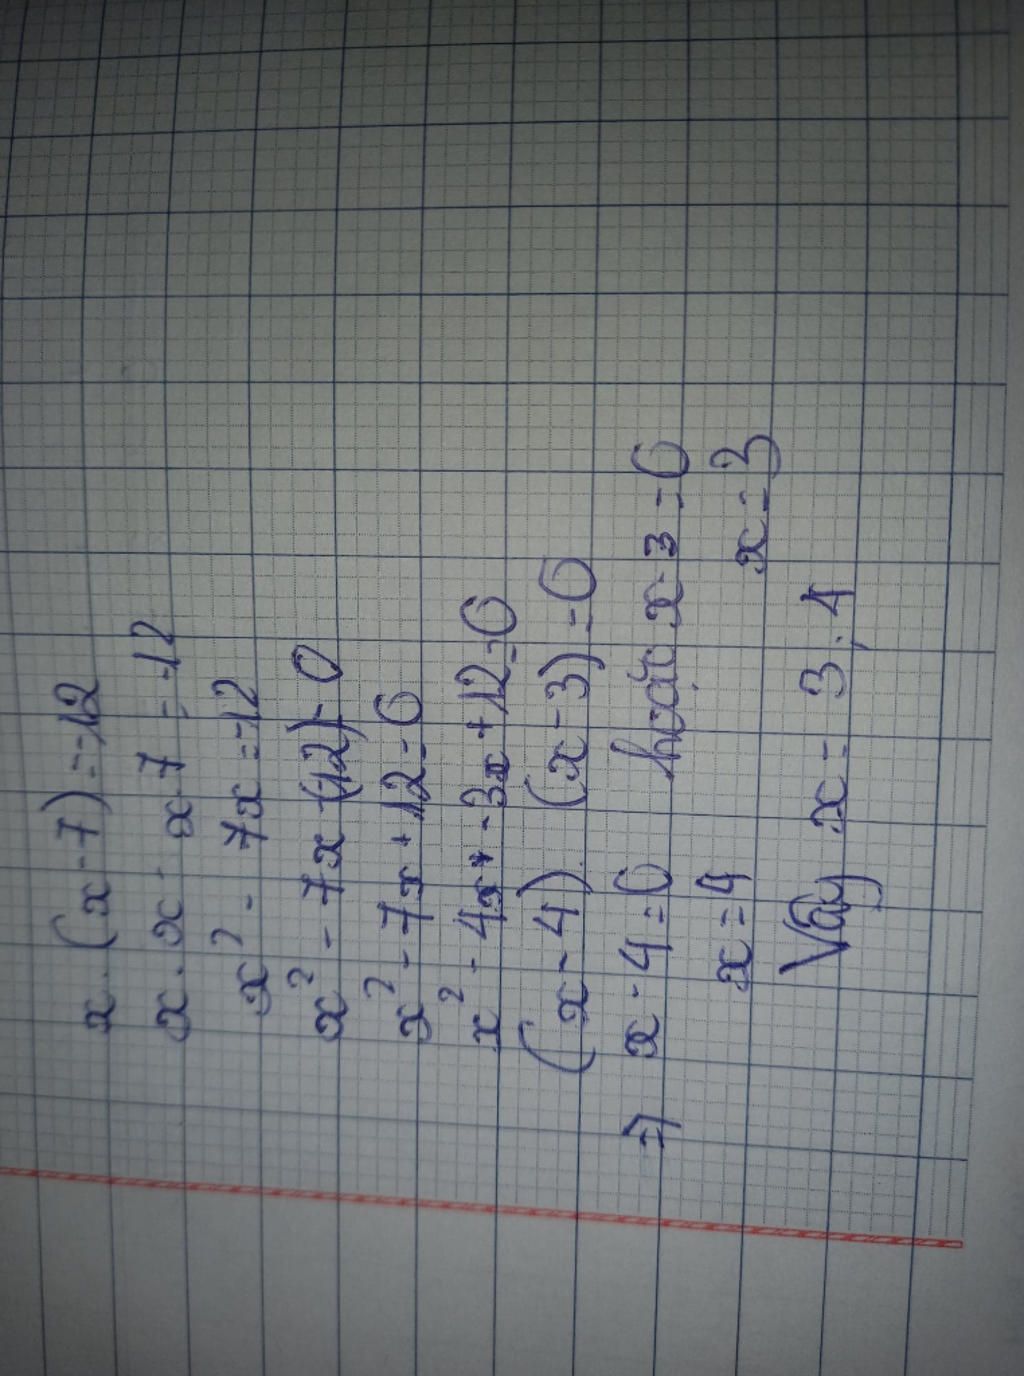 x . (x - 7) = -12
x . x - x . 7 = -12
x² - 7x = -12
x² - 7x - (-12) = 0
x² - 7x + 12 = 0
x² - 4x + -3x + 12 = 0
(x - 4) . (x - 3) = 0
=> x - 4 = 0 hoặc x - 3 = 0
x = 4 x = 3
Vậy x = 3 ; 4